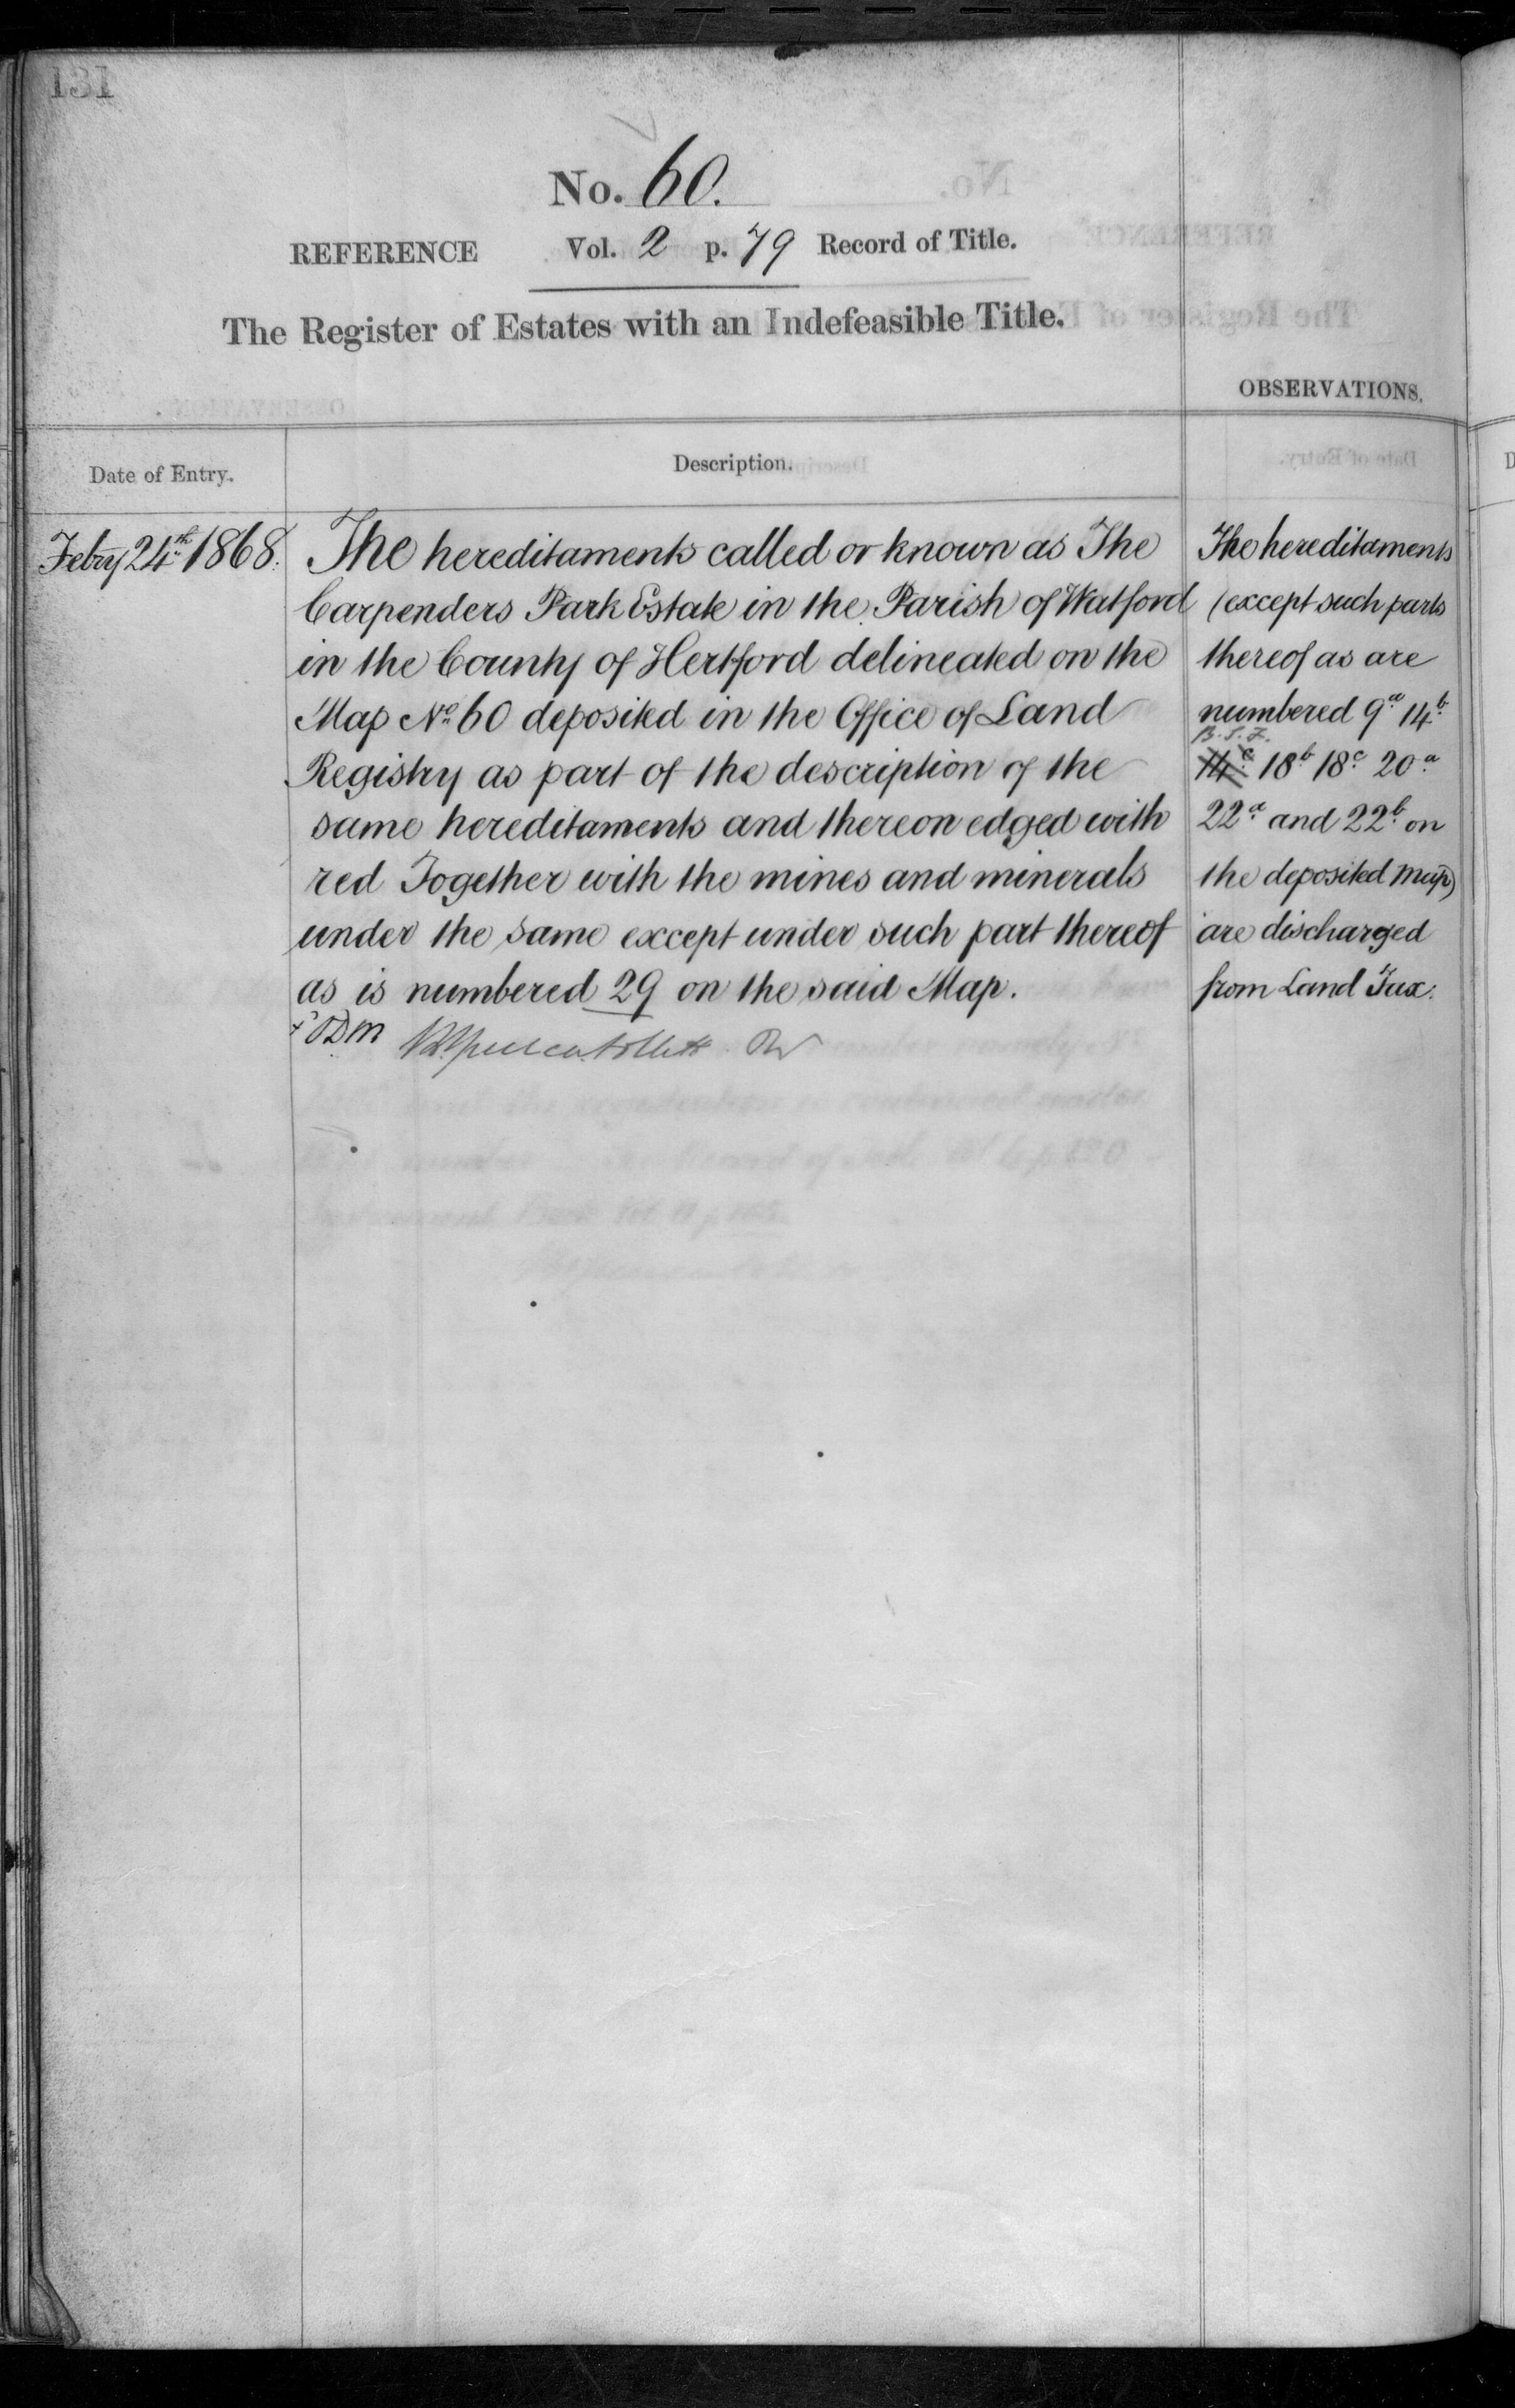 No. 60.
REFERENCE Vol. 2 p. 79 Record of Title.
The Register of Estates with an Indefeasible Title.
OBSERVATIONS.
Date of Entry.
Description.
Febry 24th 1868.
The hereditaments called or known as The
Carpenders Park Estate in the Parish of Watford
in the County of Hertford delineated on the
Map No. 60 deposited in the Office of Land
Registry as part of the description of the
same hereditaments and thereon edged with
red Together with the mines and minerals
under the same except under such part thereof
as is numbered 29 on the said Map.
The hereditaments
(except such parts
thereof as are
numbered 9a 14b
14c 18b 18c 20a
22a and 22b on
the deposited map)
are discharged
from Land Tax.